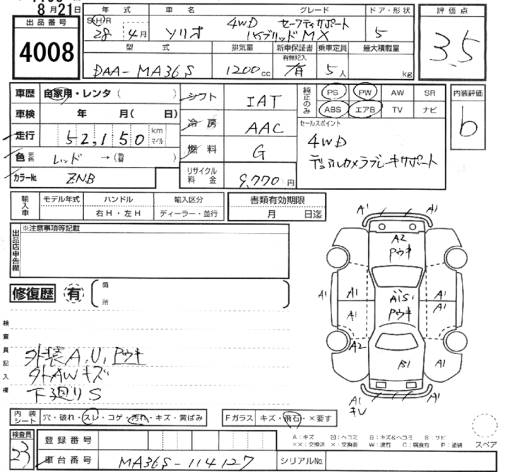 8月21日
出品番号
4008
年式 車名 グレード ドア・形状
SH R 28年4月 ソリオ 4WD セーフティサポート ハイブリッドMX 5
型式 排気量 新車保証書 有無記入 乗車定員 最大積載量
DAA-MA36S 1200cc 有 5人 kg
評価点
3.5
車歴 自家用・レンタ( )
車検 年 月( )
走行 52,150 km マイル
色 レッド→(替)
カラーNo. ZNB
シフト IAT
冷房 AAC
燃料 G
リサイクル料金 9,770円
純正のみ
PS PW AW SR
ABS エアB TV ナビ
内装評価
b
セールスポイント
4WD
デュアルカメラブレーキサポート
輸入車 モデル年式 ハンドル 輸入区分
右H・左H ディーラー・並行
書類有効期限
月 日迄
出品店申告欄
※注意事項等記載
修復歴 有 箇所
検査員記入欄
外装A,U,Pウキ
外AWキズ
下廻りS
A1 A1
A2
Pウキ
A1 A1
A1S
Pウキ
A1 A1
A2
B1
A1
A1
キレ
内装シート 穴・破れ・スレ・コゲ・汚れ・キズ・黄ばみ
Fガラス キズ・飛石・×要す
検査員
23
登録番号
車台番号 MA36S-114127
シリアルNo.
A:キズ U:ヘコミ B:キズ&ヘコミ S:サビ
××:交換済 ×:交換要 W:波性 C:腐食有 P:塗装
スペア